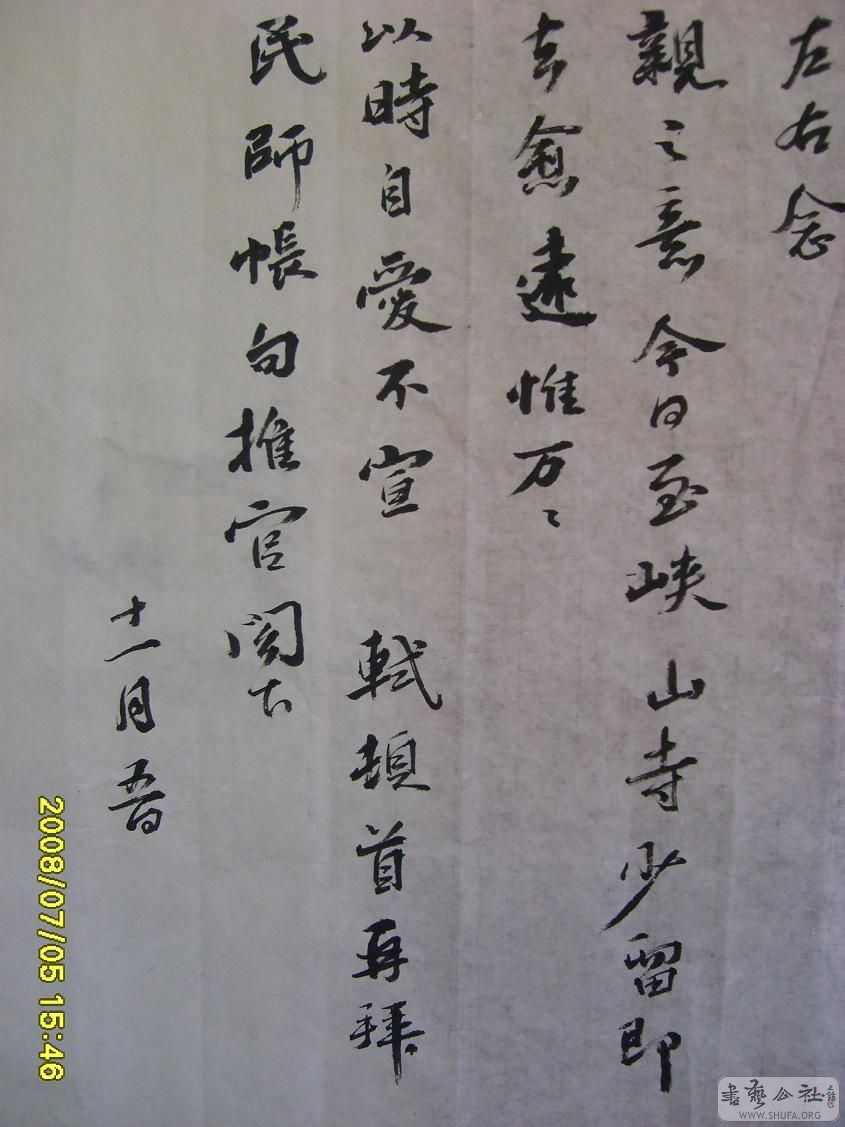 左右念
親之意今日至峽山寺少留即
去愈遠惟万〻
以時自愛不宣 軾頓首再拜
民師帳勾推官閣下
十一月五日
2008/07/05 15:46
書藝公社
WWW.SHUFA.ORG